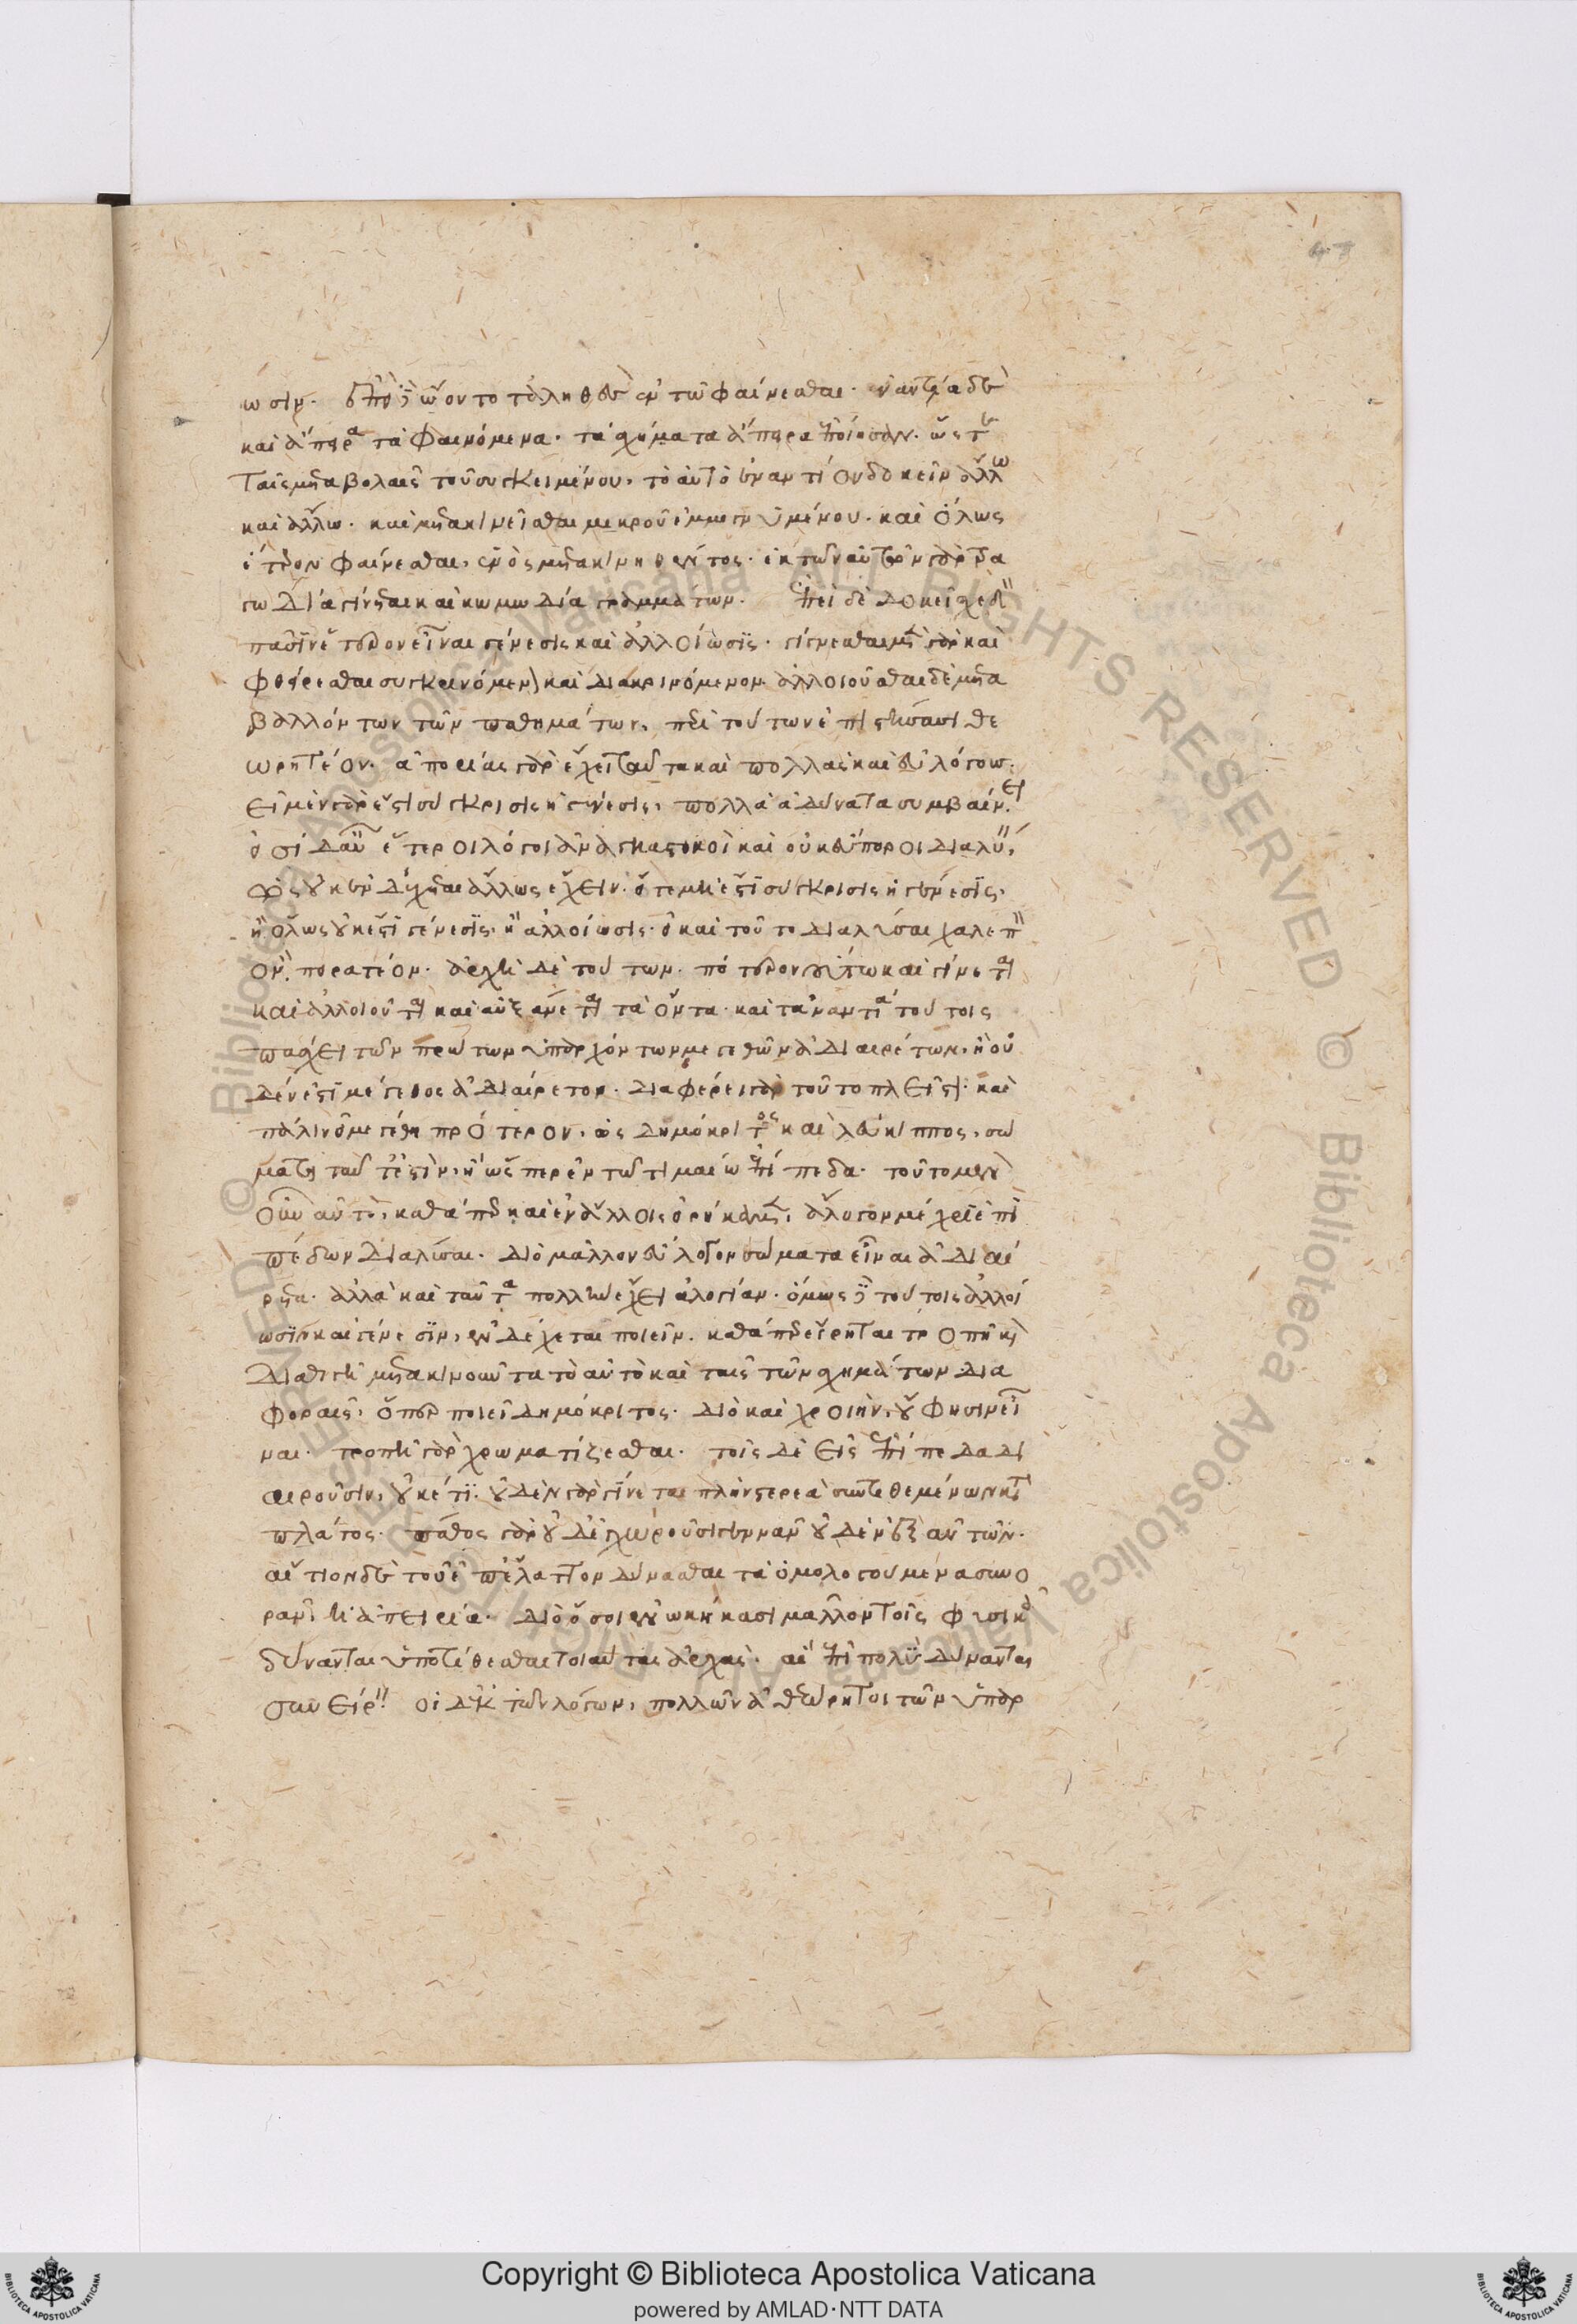 47
ωσιν. ἐπεὶ δ' ᾤοντο τἀληθὲς ἐν τῷ φαίνεσθαι. ἐναντία δὲ
καὶ ἄπειρα τὰ φαινόμενα. τὰ σχήματα ἄπειρα ἐποίησαν. ὥστε
ταῖς μεταβολαῖς τοῦ συγκειμένου, τὸ αὐτὸ ἐναντίον δοκεῖν ἄλλω
καὶ ἄλλω. καὶ μετακινεῖσθαι μικροῦ ἐμμιγνυμένου. καὶ ὅλως
ἕτερον φαίνεσθαι, ἑνὸς μετακινηθέντος. ἐκ τῶν αὐτῶν γὰρ τρα
γωδία γίνεται καὶ κωμωδία γραμμάτων. ἐπεὶ δὲ δοκεῖ σχεδὸν
πᾶσιν ἕτερον εἶναι γένεσις καὶ ἀλλοίωσις. γίγνεσθαι μὲν γὰρ καὶ
φθείρεσθαι συγκρινόμενα καὶ διακρινόμενον. ἀλλοιοῦσθαι δὲ μετα
βαλλόντων τῶν παθημάτων, περὶ τούτων ἐπιστήσασι θε
ωρητέον. ἀπορίας γὰρ ἔχει ταῦτα καὶ πολλὰς καὶ εὐλόγους.
εἰ μὲν γάρ ἐστι σύγκρισις ἡ γένεσις, πολλὰ ἀδύνατα συμβαίνει
εἰσὶ δ' αὖ ἕτεροι λόγοι ἀναγκαστικοὶ καὶ οὐκ εὔποροι διαλύειν
ὡς οὐκ ἐνδέχεται ἄλλως ἔχειν. εἴτε μή ἐστι σύγκρισις ἡ γένεσις,
ἢ ὅλως οὐκ ἔστι γένεσις. ἢ ἀλλοίωσις. ἢ καὶ τοῦτο διαλῦσαι χαλεπὸν
ὄν. πειρατέον. ἀρχὴ δὲ τούτων. πότερον οὕτω καὶ γίνεται
καὶ ἀλλοιοῦται καὶ αὐξάνεται τὰ ὄντα. καὶ τἀναντία τούτοις
πάσχει τῶν πρώτων ὑπαρχόντων μεγεθῶν ἀδιαιρέτων, ἢ οὐ
δέν ἐστι μέγεθος ἀδιαίρετον. διαφέρει γὰρ τοῦτο πλεῖστον. καὶ
πάλιν εἰ μεγέθη πρότερον, ὡς Δημόκριτος καὶ Λεύκιππος, σώ
ματα ταῦτ' ἐστὶν, ἢ ὥσπερ ἐν τῶ τιμαίω ἐπίπεδα. τοῦτο μὲν
οὖν αὐτὸ, καθάπερ καὶ ἐν ἄλλοις εἰρήκαμεν, ἄλογον μέχρι ἐπι
πέδων διαλῦσαι. διὸ μᾶλλον εὔλογον σώματα εἶναι ἀδιαί
ρετα. ἀλλὰ καὶ ταῦτα πολλὴν ἔχει ἀλογίαν. ὅμως δὲ τούτοις ἀλλοί
ωσιν καὶ γένεσιν, ἐνδέχεται ποιεῖν. καθάπερ εἴρηται τροπῆ καὶ
διαθιγῆ μετακινοῦντα τὸ αὐτὸ καὶ ταῖς τῶν σχημάτων δια
φοραῖς, ὅπερ ποιεῖ Δημόκριτος. διὸ καὶ χροιὴν, οὔ φησιν εἶ
ναι. τροπῆ γὰρ χρωματίζεσθαι. τοῖς δὲ εἰς ἐπίπεδα δι
αιροῦσιν, οὐκέτι. οὐδὲν γὰρ γίνεται πλὴν στερεὰ συντιθεμένων κατὰ
πλάτος. πάθος γὰρ οὐδ' ἐγχειροῦσι γεννᾶν οὐδὲν ἐξ αὐτῶν.
αἴτιον δὲ τοῦ ἐπ' ἔλαττον δύνασθαι τὰ ὁμολογούμενα συνο
ρᾶν, ἡ ἀπειρία. διὸ ὅσοι ἐνωκήκασι μᾶλλον τοῖς φυσικοῖς
δύνανται ὑποτίθεσθαι τοιαύτας ἀρχὰς. αἳ ἐπὶ πολὺ δύνανται
συνείρειν οἱ δ' ἐκ τῶν λόγων, πολλῶν ἀθεώρητοι τῶν ὑπαρ
© Biblioteca Apostolica Vaticana ALL RIGHTS RESERVED
Copyright © Biblioteca Apostolica Vaticana
powered by AMLAD·NTT DATA
BIBLIOTECA APOSTOLICA VATICANA
BIBLIOTECA APOSTOLICA VATICANA